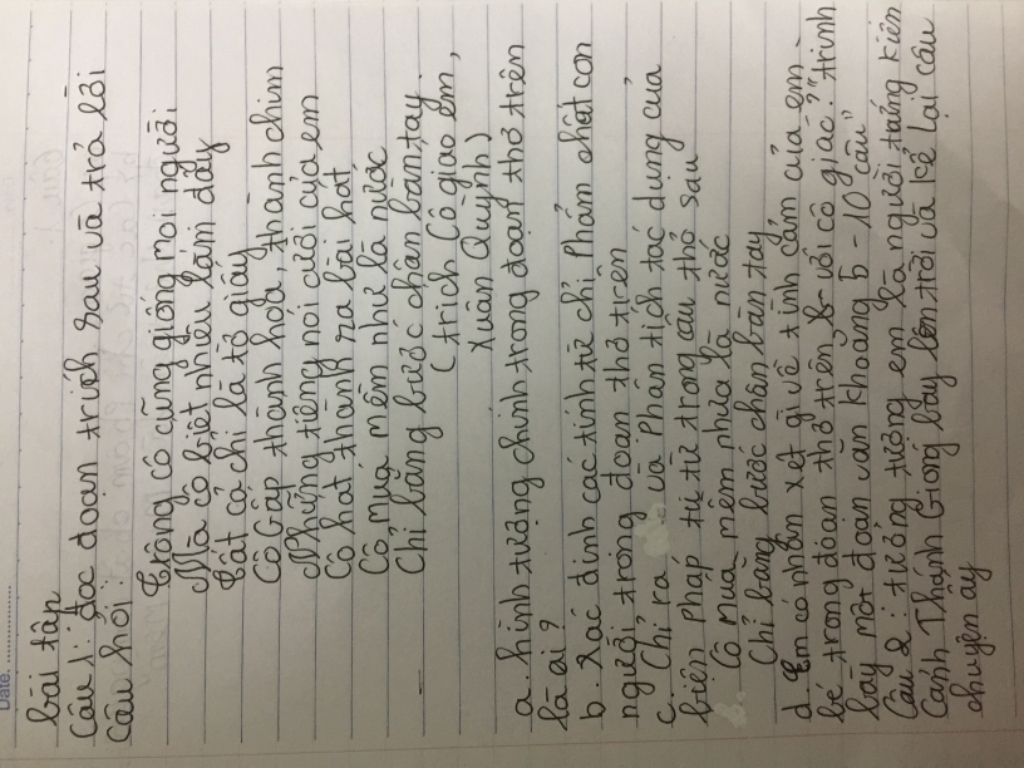 Date: ..............
bài tập
Câu 1: đọc đoạn trích sau và trả lời
câu hỏi:
Trông cô cũng giống mọi người
Mà cô biết nhiều lắm đấy
Tất cả chỉ là tờ giấy
Cô Gấp thành hoa, thành chim
Những tiếng nói cười của em
Cô hát thành ra bài hát
Cô múa mềm như là nước
Chỉ bằng bước chân bàn tay
(trích Cô giáo em,
Xuân Quỳnh)
a. hình tượng chính trong đoạn thơ trên
là ai?
b. Xác định các tính từ chỉ Phẩm chất con
người trong đoạn thơ trên
c. Chỉ ra và Phân tích tác dụng của
biện pháp tu từ trong câu thơ sau
Cô múa mềm như là nước
Chỉ bằng bước chân bàn tay
d. Em có nhận xét gì về tình cảm của em
bé trong đoạn thơ trên với cô giáo? "trình
bày một đoạn văn khoảng 5-10 câu"
Câu 2: tưởng tượng em là người táng kiến
cảnh Thánh Gióng bay lên trời và kể lại câu
chuyện ấy